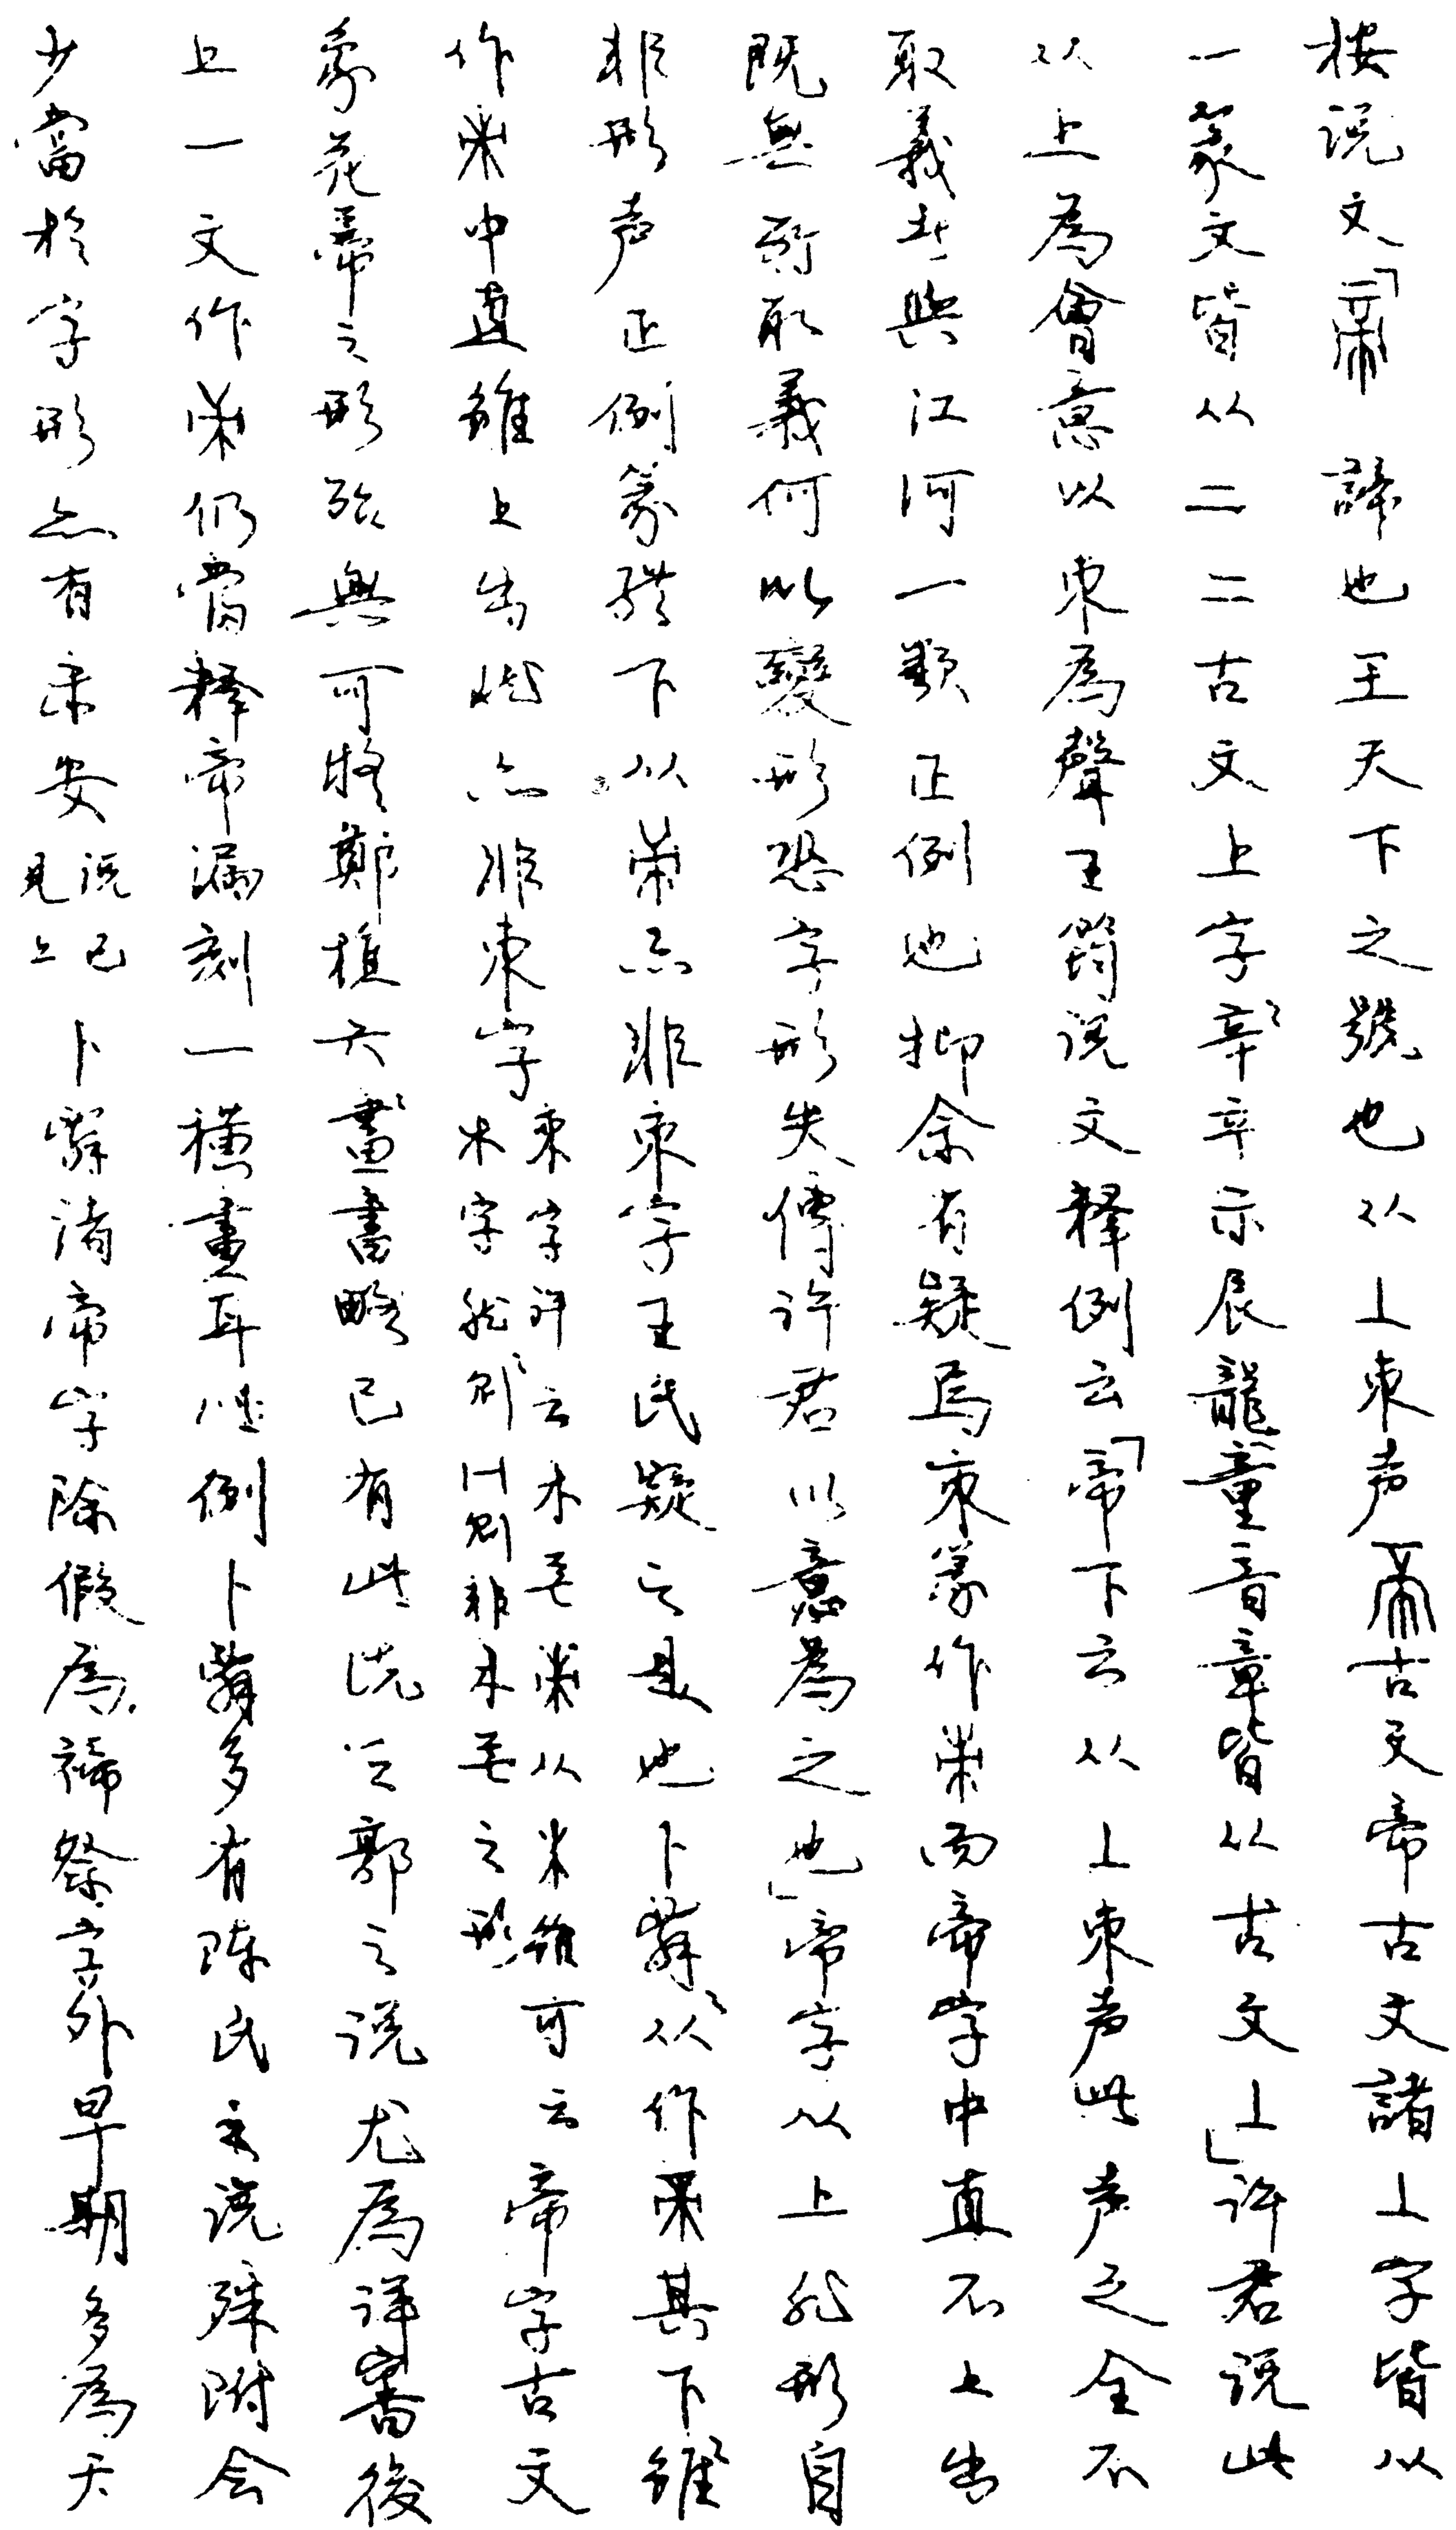 按説文「帝 諦也王天下之號也从丄朿声帝古文帝古文諸丄字皆从
一篆文皆从二二古文上字䇂辛示辰龍童音章皆从古文丄」許君説此
从上為會意以朿為聲王筠説文释例云「帝下云从丄朿声此声之全不
取義者與江河一類正例也抑余有疑焉朿篆作朿而帝字中直不上出
既無所取義何以變形恐字形失傳許君以意為之也」帝字从上既形自
非形声正例篆體下从朿亦非朿字王氏疑之是也卜辭从作其下雖
作中直雖上出然亦非朿字朿字許云木芒朿从米雖可云帝字古文
木字然則則非木芒之形
象花蒂之形殆無可疑鄭樵六書略已有此説吳郭之説尤為詳審後
上一文作仍當释帝漏刻一横畫耳此例卜辭多有陳氏之説殊附会
少當於字形亦有未安説已見上卜辭諸帝字除假為禘祭字外早期多為天